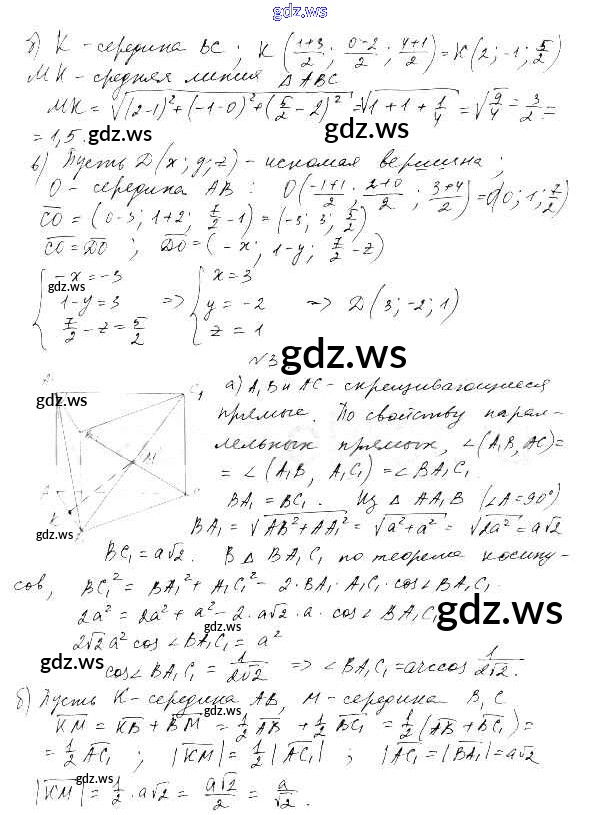 gdz.ws
б) K - середина BC; K(1+3/2; 0-2/2; 4+1/2) = K(2; -1; 5/2)
MK - средняя линия Δ ABC
MK = √((2-1)² + (-1-0)² + (5/2 - 2)²) = √(1+1+1/4) = √(9/4) = 3/2 =
= 1,5.
gdz.ws
gdz.ws
в) Пусть D(x; y; z) - искомая вершина;
O - середина AB: O(-1+1/2; 2+0/2; 3+4/2) = O(0; 1; 7/2)
CO = (0-3; 1+2; 7/2 - 1) = (-3; 3; 5/2)
CO = DO; DO = (-x; 1-y; 7/2 - z)
{ -x = -3 => { x = 3
1-y = 3 y = -2 => D(3; -2; 1)
7/2 - z = 5/2 z = 1
gdz.ws
№3
gdz.ws
а) A₁B и AC - скрещивающиеся
прямые. По свойству парал-
лельных прямых, ∠(A₁B, AC) =
= ∠(A₁B, A₁C₁) = ∠BA₁C₁
BA₁ = BC₁. Из Δ AA₁B (∠A = 90°)
BA₁ = √(AB² + AA₁²) = √(a² + a²) = √(2a²) = a√2
A C₁ B M A K
gdz.ws
gdz.ws
BC₁ = a√2. В Δ BA₁C₁ по теореме косину-
сов, BC₁² = BA₁² + A₁C₁² - 2·BA₁·A₁C₁·cos∠BA₁C₁.
2a² = 2a² + a² - 2·a√2·a·cos∠BA₁C₁
2√2a² cos∠BA₁C₁ = a²
gdz.ws
cos∠BA₁C₁ = 1/2√2 => ∠BA₁C₁ = arccos 1/2√2.
gdz.ws
б) Пусть K - середина AB, M - середина B₁C
gdz.ws
KM = KB + BM = 1/2 AB + 1/2 BC₁ = 1/2(AB + BC₁) =
= 1/2 AC₁; |KM| = 1/2 |AC₁|; |AC₁| = |BA₁| = a√2
|KM| = 1/2 · a√2 = a√2/2 = a/√2.
gdz.ws
gdz.ws